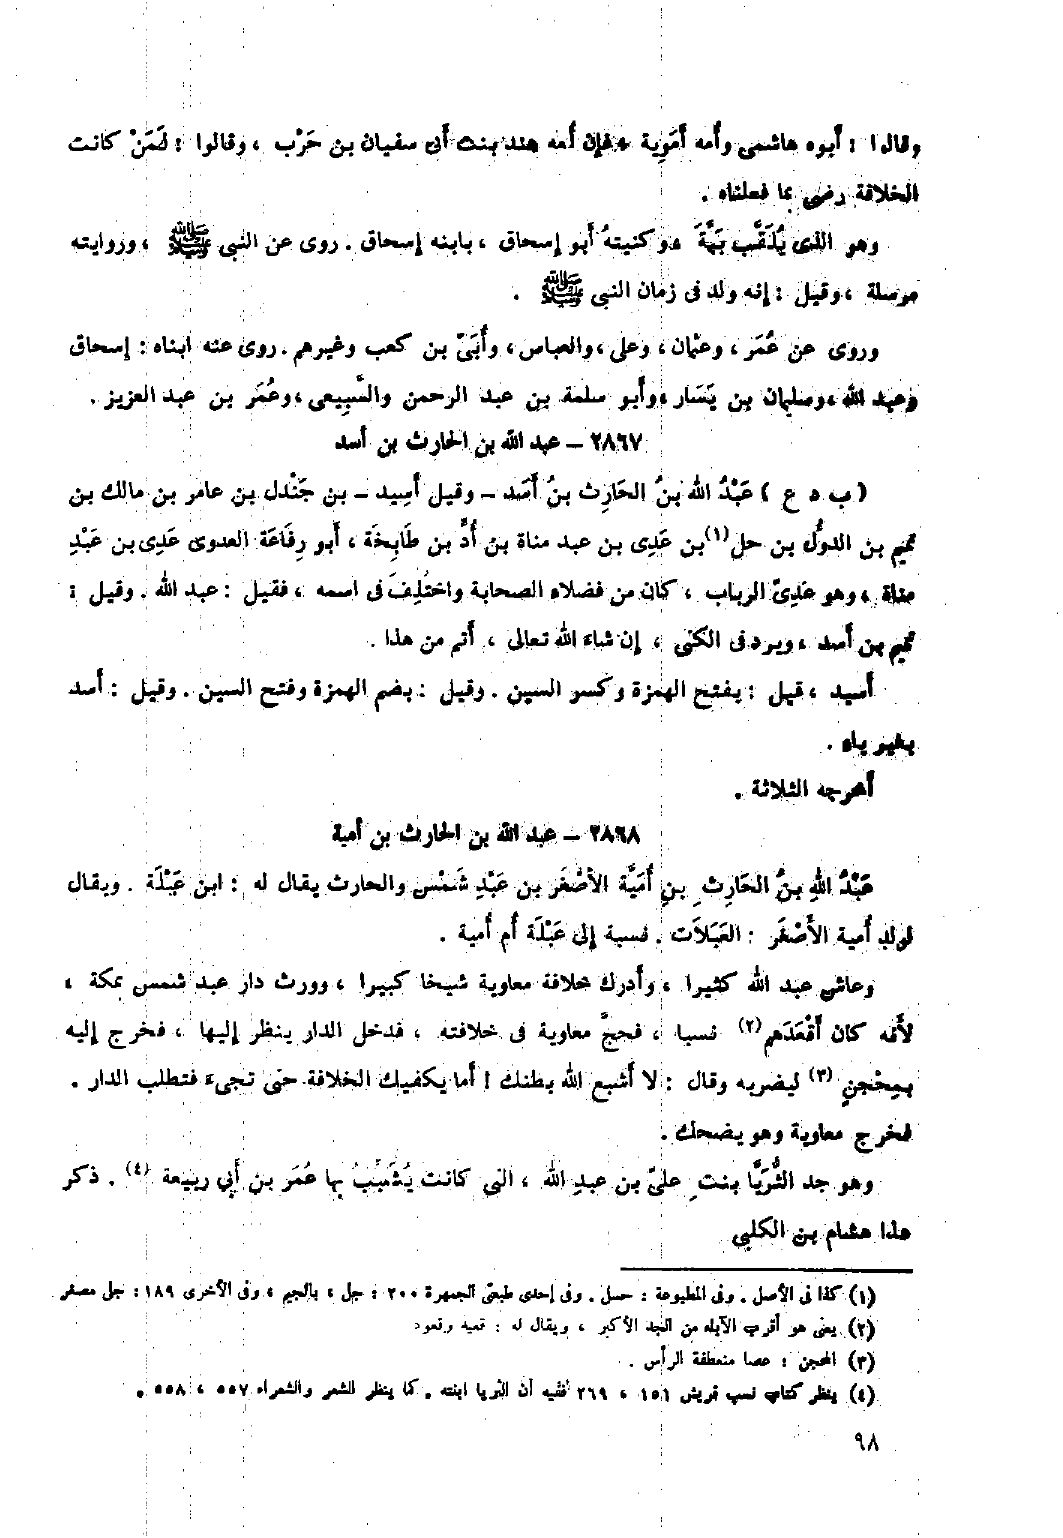 وقالوا : أبوه هاشمى وأمه أمَوِية ، فإن أمه هند بنت أبى سفيان بن حَرْب ، وقالوا : لمَنْ كانت
الخلافة رضى بما فعلناه .
وهو الذى يُلَقَّب بَبَّةَ ، وكنيتهُ أبو إسحاق ، بابنه إسحاق . روى عن النبى ﷺ ، وروايته
مرسلة ، وقيل : إنه ولد فى زمان النبى ﷺ .
وروى عن عُمَر ، وعثمان ، وعلى ، والعباس ، وأُبَىّ بن كعب وغيرهم . روى عنه ابناه : إسحاق
وعبد الله ، وسليمان بن يَسَار ، وأبو سلمة بن عبد الرحمن والسَّبِيعى ، وعُمَر بن عبد العزيز .
٢٨٦٧ – عبد الله بن الحارث بن أسد
( ب د ع ) عَبْدُ الله بنُ الحَارِث بنُ أَسَد – وقيل أَسِيد – بن جَنْدل بن عامر بن مالك بن
تميم بن الدؤُل بن حل(١) بن عَدِى بن عبد مناة بن أُدِّ بن طَابِخَة ، أبو رِفَاعَة العدوى عَدِى بن عَبْدِ
مناة ، وهو عَدِىّ الرباب ، كان من فضلاء الصحابة واختُلِفَ فى اسمه ، فقيل : عبد الله . وقيل :
تميم بن أسد ، ويرد فى الكنى ، إن شاء الله تعالى ، أتم من هذا .
أسيد ، قيل : بفتح الهمزة وكسر السين . وقيل : بضم الهمزة وفتح السين . وقيل : أسد
بغير ياء .
أخرجه الثلاثة .
٢٨٦٨ – عبد الله بن الحارث بن أمية
عَبْدُ اللهِ بنُ الحَارِثِ بنِ أُمَيَّة الأصْغَر بن عَبْدِ شَمْس والحارث يقال له : ابن عَبْلَة . ويقال
لولد أمية الأَصْغَر : العَبَلاَت . نسبة إلى عَبْلَة أم أُمية .
وعاش عبد الله كثيرا ، وأدرك خلافة معاوية شيخا كبيرا ، وورث دار عبد شمس بمكة ،
لأَنه كان أَقْعَدَهم(٢) نسبا ، فحجَّ معاوية فى خلافته ، فدخل الدار ينظر إليها ، فخرج إليه
بمِحْجنٍ (٣) ليضربه وقال : لا أشبع الله بطنك ! أما يكفيك الخلافة حتى تجىء فتطلب الدار .
فخرج معاوية وهو يضحك .
وهو جد الثُّرَيَّا بنت علىّ بن عبدِ الله ، التي كانت يُشَبِّبُ بها عُمَر بن أبي ربيعة (٤) . ذكر
هذا هشام بن الكلبي
(١) كذا فى الأصل . وفى المطبوعة : حسل . وفى إحدى طبعتى الجمهرة ٢٠٠ : جل ، بالجيم ، وفى الأخرى ١٨٩ : جل مصغر
(٢) يعنى هو أقرب الآباء من الجد الأكبر ، ويقال له : قعيد وقعود
(٣) المحجن : عصا منعطفة الرأس .
(٤) ينظر كتاب نسب قريش ١٥١ ، ٢٦٩ ففيه أن الثريا ابنته . كما ينظر الشعر والشعراء ٥٥٧ ، ٥٥٨ .
٩٨